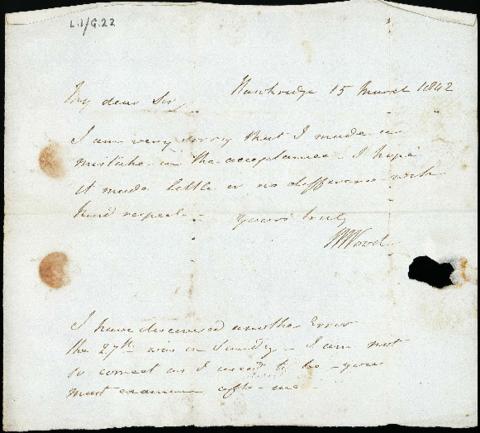 L.1/G.22
Hawbridge 15 March 1842
My dear Sir
I am very sorry that I made a
mistake in the acceptances - I hope
it made little or no difference with
kind respect -
yours truly
Wood
I have discovered another Error
the 27th was a Sunday - I am not
so correct as I used to be - you
must examine after me